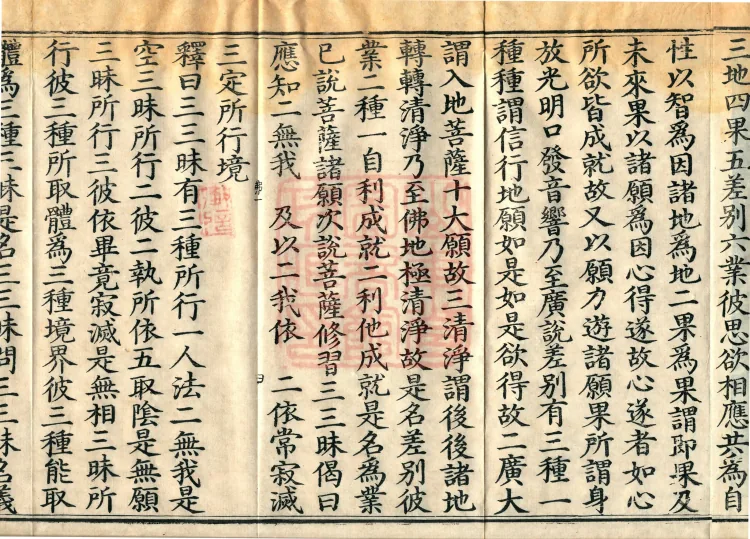 三地四果五差别六業彼思欲相應共為自
性以智為因諸地為地二果為果謂即果及
未來果以諸願為因心得遂故心遂者如心
所欲皆成就故又以願力遊諸願果所謂身
放光明口發音響乃至廣說差别有三種一
種種謂信行地願如是如是欲得故二廣大
謂入地菩薩十大願故三清淨謂後後諸地
轉轉清淨乃至佛地極清淨故是名差别彼
業二種一自利成就二利他成就是名為業
已說菩薩諸願次說菩薩修習三三昧偈曰
應知二無我 及以二我依 二依常寂滅
三定所行境
釋曰三三昧有三種所行一人法二無我是
空三昧所行二彼二執所依五取陰是無願
三昧所行三彼依畢竟寂滅是無相三昧所
行彼三種所取體為三種境界彼三種能取
體為三種三昧是名三三昧問三三昧名義